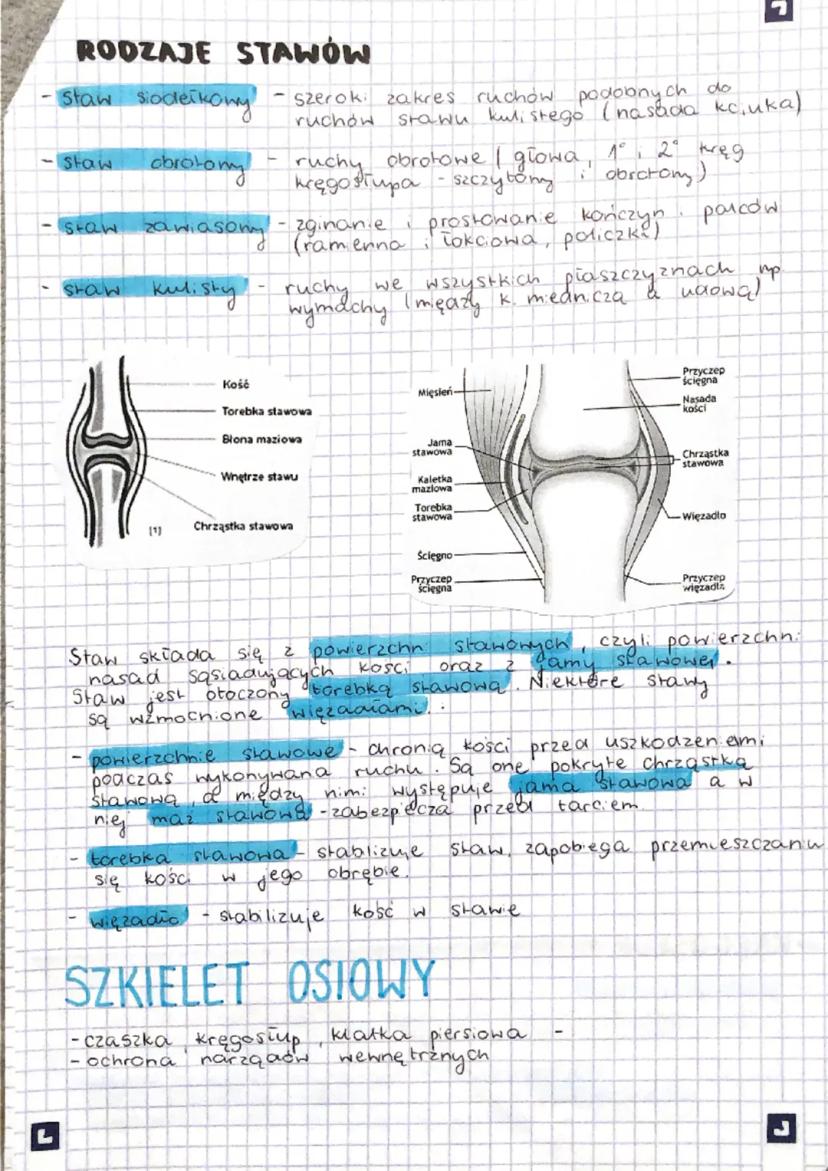 RODZAJE STAWÓW
- staw siodełkowy - szeroki zakres ruchów podobnych do
ruchów stawu kulistego (nasada kciuka)
- staw obrotowy - ruchy obrotowe (głowa, 1° i 2° kręg
kręgosłupa - szczytowy i obrotowy)
- staw zawiasowy - zginanie i prostowanie kończyn i palców
(ramienna i łokciowa, policzki)
- staw kulisty - ruchy we wszystkich płaszczyznach np.
wymachy (między k. miedniczą a udową)
Kość
Torebka stawowa
Błona maziowa
Wnętrze stawu
Chrząstka stawowa
[1]
Mięsień
Jama
stawowa
Kaletka
maziowa
Torebka
stawowa
Ścięgno
Przyczep
ścięgna
Przyczep
ścięgna
Nasada
kości
Chrząstka
stawowa
Więzadło
Przyczep
więzadła
Staw składa się z powierzchni stawowych, czyli powierzchni
nasad sąsiadujących kości oraz z jamy stawowej.
Staw jest otoczony torebką stawową. Niektóre stawy
są wzmocnione więzadłami.:
- powierzchnie stawowe - chronią kości przed uszkodzeniami
podczas wykonywana ruchu. Są one pokryte chrząstką
stawową, a między nimi występuje jama stawowa a w
niej maź stawowa - zabezpiecza przed tarciem.
- torebka stawowa - stabilizuje staw, zapobiega przemieszczaniu
się kości w jego obrębie.
- więzadło - stabilizuje kość w stawie
SZKIELET OSIOWY
- czaszka, kręgosłup, klatka piersiowa -
- ochrona narządów wewnętrznych